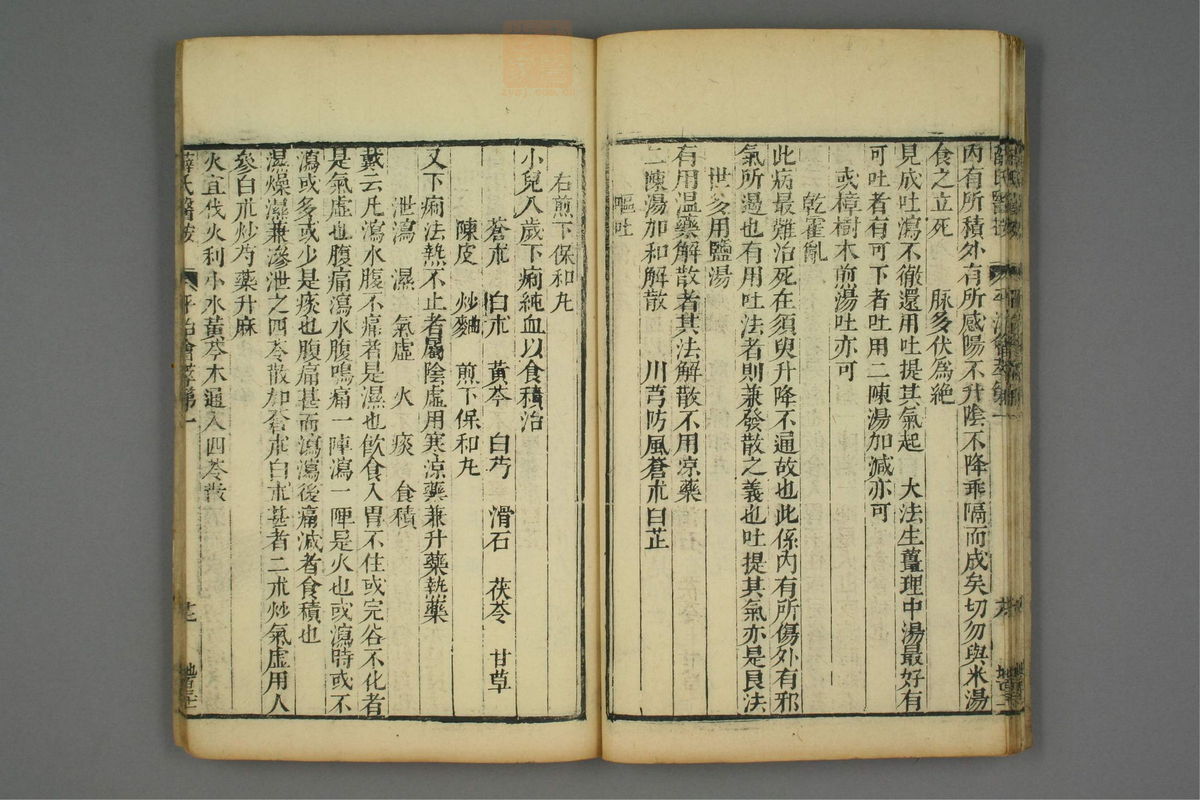 內有所積外有所感陽不升陰不降乖隔而成矣切勿與米湯
食之立死　脉多伏爲絶
見成吐瀉不徹還用吐提其氣起　大法生薑理中湯最好有
可吐者有可下者吐用二陳湯加減亦可
或樟樹木煎湯吐亦可
乾霍亂
此病最難治死在須臾升降不通故也此係內有所傷外有邪
氣所遏也有用吐法者則兼發散之義也吐提其氣亦是良法
世多用鹽湯
有用温藥解散者其法解散不用凉藥
二陳湯加和解散　川芎防風蒼朮白芷
嘔吐
右煎下保和丸
小兒八歲下痢純血以食積治
蒼朮　白朮　黃芩　白芍　滑石　茯苓　甘草
陳皮　炒麯　煎下保和丸
又下痢法熱不止者屬陰虛用寒涼藥兼升藥熱藥
泄瀉　濕　氣虛　火　痰　食積
戴云凡瀉水腹不痛者是濕也飲食入胃不住或完谷不化者
是氣虛也腹痛瀉水腹鳴痛一陣瀉一陣是火也或瀉時或不
瀉或多或少是痰也腹痛甚而瀉瀉後痛減者食積也
濕燥濕兼滲泄之四苓散加蒼朮白朮甚者二朮炒氣虛用人
參白朮炒芍藥升麻
火宜伐火利小水黃芩木通入四苓散
薛氏醫案　平治會萃第一